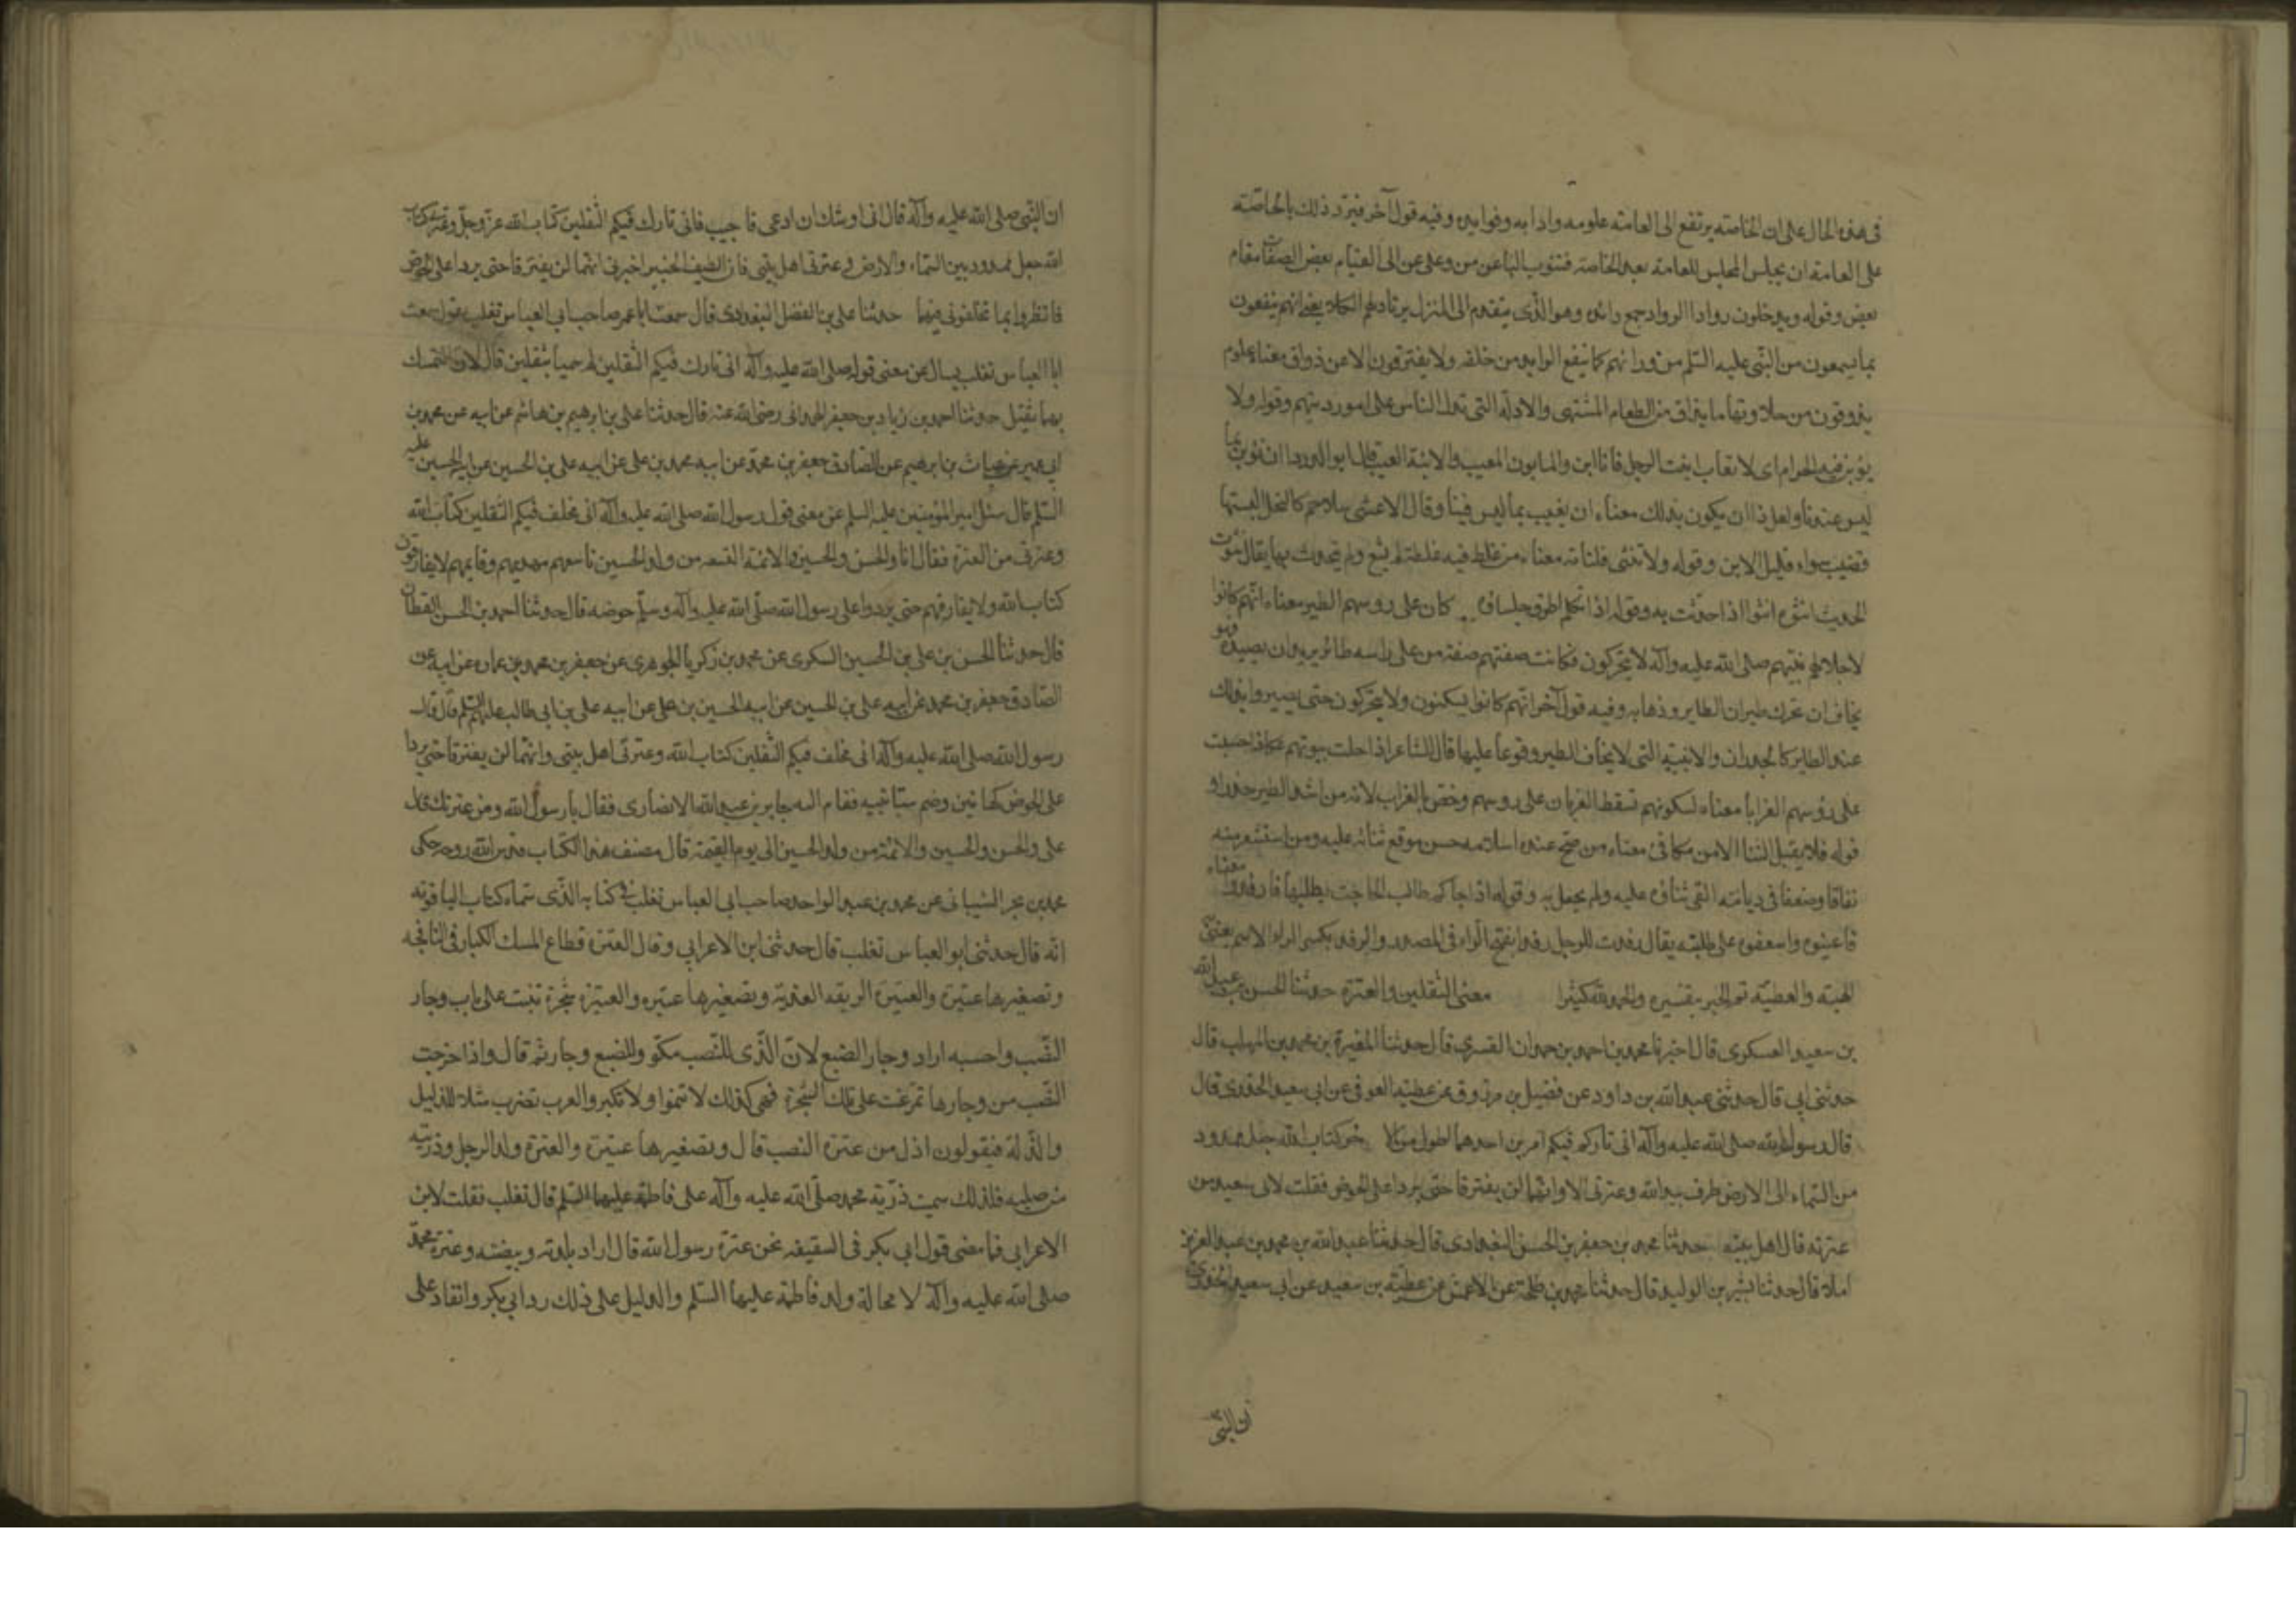 فى هذه الحال على ان الخاصته يرتفع الى العامته علومه وادابه وفوايده وفيه قول آخر فيرد ذلك بالخاصته
على العامة ان يجلس المجلس للعامة بعد الخاصة فتنوب الباعن من وعلى عن الى القيام بعض الصفات مقام
بعض وقوله ويدخلون روادا الرواد جمع رائد وهو الذى يتقدم الى المنزل يرتاد لهم الكلاء يعنى انهم ينفعون
بما يسمعون من النبى عليه السلم من ورائهم كما ينفع الرايد من خلفه ولا يفترقون الا عن ذواق معناه علوم
يذوقون من حلاوتها ما يذاق من الطعام المشتهى والادلة التى تدل الناس على امور دينهم وقوله ولا
يؤبن فيه الحرم اى لا تعاب ابنت الرجل فانا ابن والمابون المعيب والابنة العيب قال ابو الدردا ان نؤبن بما
ليس عندنا ولعل ذا ان يكون بذلك معناه ان نعيب بما ليس فينا وقال الاعشى سلاجم كالنحل البستها
قضيب سراء قليل الابن وقوله ولا تنثى فلتاته معناه من غلط فيه غلطة لم يشع ولم يتحدث بها يقال نثوت
الحديث انثوه انثوا اذا حدثت به وقوله اذا تكلم اطرق جلساؤه كان على روسهم الطير معناه انهم كانوا
لاجلالهم نبيهم صلى الله عليه وآله لا يتحركون فكانت صفتهم صفة من على راسه طائر يريد ان يصيده وهو
يخاف ان تحرك طيران الطاير وذهابه وفيه قول آخر انهم كانوا يسكنون ولا يتحركون حتى يصيروا بذلك
عند الطاير كالجدران والابنية التى لا يخاف الطير وقوعا عليها قال الشاعر اذا حلت بيوتهم عكاظ احسبت
على رؤسهم الغرابا معناه لسكونهم تسقط الغربان على روسهم وخص بالغراب لانه من اشد الطير حذرا و
قوله فلا يقبل الثنا الا من مكافئ معناه من صح عنده اسلامه حسن موقع ثنائه عليه ومن استشعر منه
نفاقا وضعفا فى ديانته القى ثناؤه عليه ولم يحفل به وقوله اذا جاكم طالب الحاجت يطلبها فارفدوه معناه
فاعينوه واسعفوه على طلبته يقال رفدت للرجل رفدا بفتح الراء فى المصدر والرفد بكسر الراء الاسم يعنى
الهبة والعطية تم الخبر بتفسيره والحمد لله كثيرا معنى الثقلين والعترة حدثنا الحسن بن عبد الله
بن سعيد العسكرى قال اخبرنا محمد بن احمد بن حمدان القسرى قال حدثنا المغيرة بن محمد بن المهلب قال
حدثنى ابى قال حدثنى عبد الله بن داود عن فضيل بن مرزوق عن عطية العوفى عن ابى سعيد الخدرى قال
قال رسول الله صلى الله عليه وآله انى تارك فيكم امرين احدهما اطول من الاخر كتاب الله حبل ممدود
من السماء الى الارض طرف بيد الله وعترتى الا وانهما لن يفترقا حتى يردا على الحوض فقلت لابى سعيد من
عترته قال اهل بيته حدثنا محمد بن جعفر بن الحسن البغدادى قال حدثنا عبد الله بن محمد بن عبد العزيز
املاء قال حدثنا بشر بن الوليد قال حدثنا محمد بن طلحة عن الاعمش عن عطية بن سعيد عن ابى سعيد الخدرى
ان النبى
ان النبى صلى الله عليه وآله قال انى اوشك ان ادعى فاجيب فانى تارك فيكم الثقلين كتاب الله عز وجل وعترتى كتاب
الله حبل ممدود بين السماء والارض وعترتى اهل بيتى فان اللطيف الخبير اخبرنى انهما لن يفترقا حتى يردا على الحوض
فانظروا بما تخلفونى فيهما حدثنا على بن الفضل البغدادى قال سمعت ابا عمر صاحب ابى العباس تغلب يقول سمعت
ابا العباس تغلب يسال عن معنى قوله صلى الله عليه وآله انى تارك فيكم الثقلين لم سميا بثقلين قال لان التمسك
بهما ثقيل حدثنا احمد بن زياد بن جعفر الهمدانى رضى الله عنه قال حدثنا على بن ابرهيم بن هاشم عن ابيه عن محمد بن
ابى عمير عن غياث بن ابرهيم عن الصادق جعفر بن محمد عن ابيه محمد بن على عن ابيه على بن الحسين عن ابيه الحسين عليه
السلم قال سئل امير المؤمنين عليه السلم عن معنى قول رسول الله صلى الله عليه وآله انى مخلف فيكم الثقلين كتاب الله
وعترتى من العترة فقال انا والحسن والحسين والائمة التسعه من ولد الحسين تاسعهم مهديهم وقايمهم لا يفارقون
كتاب الله ولا يفارقهم حتى يردوا على رسول الله صلى الله عليه وآله وسلم حوضه قال حدثنا احمد بن الحسن القطان
قال حدثنا الحسن بن على بن الحسين السكرى عن محمد بن زكريا الجوهرى عن جعفر بن محمد بن عمارة عن ابيه عن
الصادق جعفر بن محمد عن ابيه على بن الحسين عن ابيه الحسين بن على عن ابيه على بن ابى طالب عليهم السلم قال قال
رسول الله صلى الله عليه وآله انى مخلف فيكم الثقلين كتاب الله وعترتى اهل بيتى وانهما لن يفترقا حتى يردا
على الحوض كهاتين وضم سبابتيه فقام اليه جابر بن عبد الله الانصارى فقال يا رسول الله ومن عترتك قال
على والحسن والحسين والائمة من ولد الحسين الى يوم القيمة قال مصنف هذا الكتاب قدس الله روحه حكى
محمد بن بحر الشيبانى عن محمد بن عبد الواحد صاحب ابى العباس تغلب فى كتابه الذى سماه كتاب الياقوته
انه قال حدثنى ابو العباس تغلب قال حدثنى ابن الاعرابى وقال العترة قطاع المسك الكبار فى النافجه
وتصغيرها عتيرة والعتيرة الريقه العذبة وتصغيرها عتيره والعتيرة شجرة تنبت على باب وجار
الضب واحسبه اراد وجار الضبع لان الذى للضب مكو وللضبع وجار ثم قال واذا خرجت
الضب من وجارها تمرغت على تلك الشجرة فهى كذلك لا تنموا ولا تكبر والعرب تضرب مثلا للذليل
والذلة فيقولون اذل من عترة الضب قال وتصغيرها عتيرة والعترة ولد الرجل وذريته
من صلبه فلذلك سميت ذرية محمد صلى الله عليه وآله على فاطمة عليهما السلم قال تغلب فقلت لابن
الاعرابى فما معنى قول ابى بكر فى السقيفه نحن عترة رسول الله قال اراد بلدته وبيضته وعترة محمد
صلى الله عليه وآله لا محالة ولد فاطمة عليها السلم والدليل على ذلك رد ابى بكر وانفاذ على